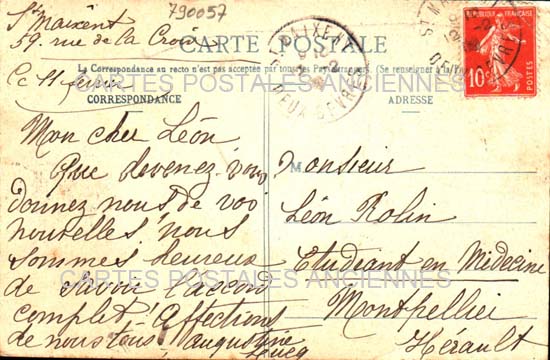 790057
St Maixent
59. rue de la Croix
Ce 11 février
CARTE POSTALE
La Correspondance au recto n'est pas acceptée par tous les Pays étrangers. (Se renseigner à la Poste)
CORRESPONDANCE
ADRESSE
RÉPUBLIQUE FRANÇAISE
10c
POSTES
DEUX SÈVRES
Mon cher Léon,
Que devenez-vous
donnez nous de vos
nouvelles. nous
sommes heureux
de savoir l'accord
complet. Affections
de nous tous, Augustine
M
Monsieur
Léon Rolin
Etudiant en Médecine
Montpellier
Hérault
CARTES POSTALES ANCIENNES
CARTES POSTALES ANCIENNES